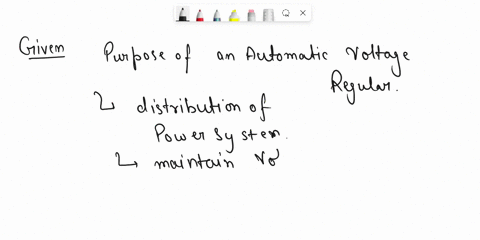 Given Purpose of an Automatic Voltage
Regular.
↳ distribution of
Power system.
↳ maintain Vo